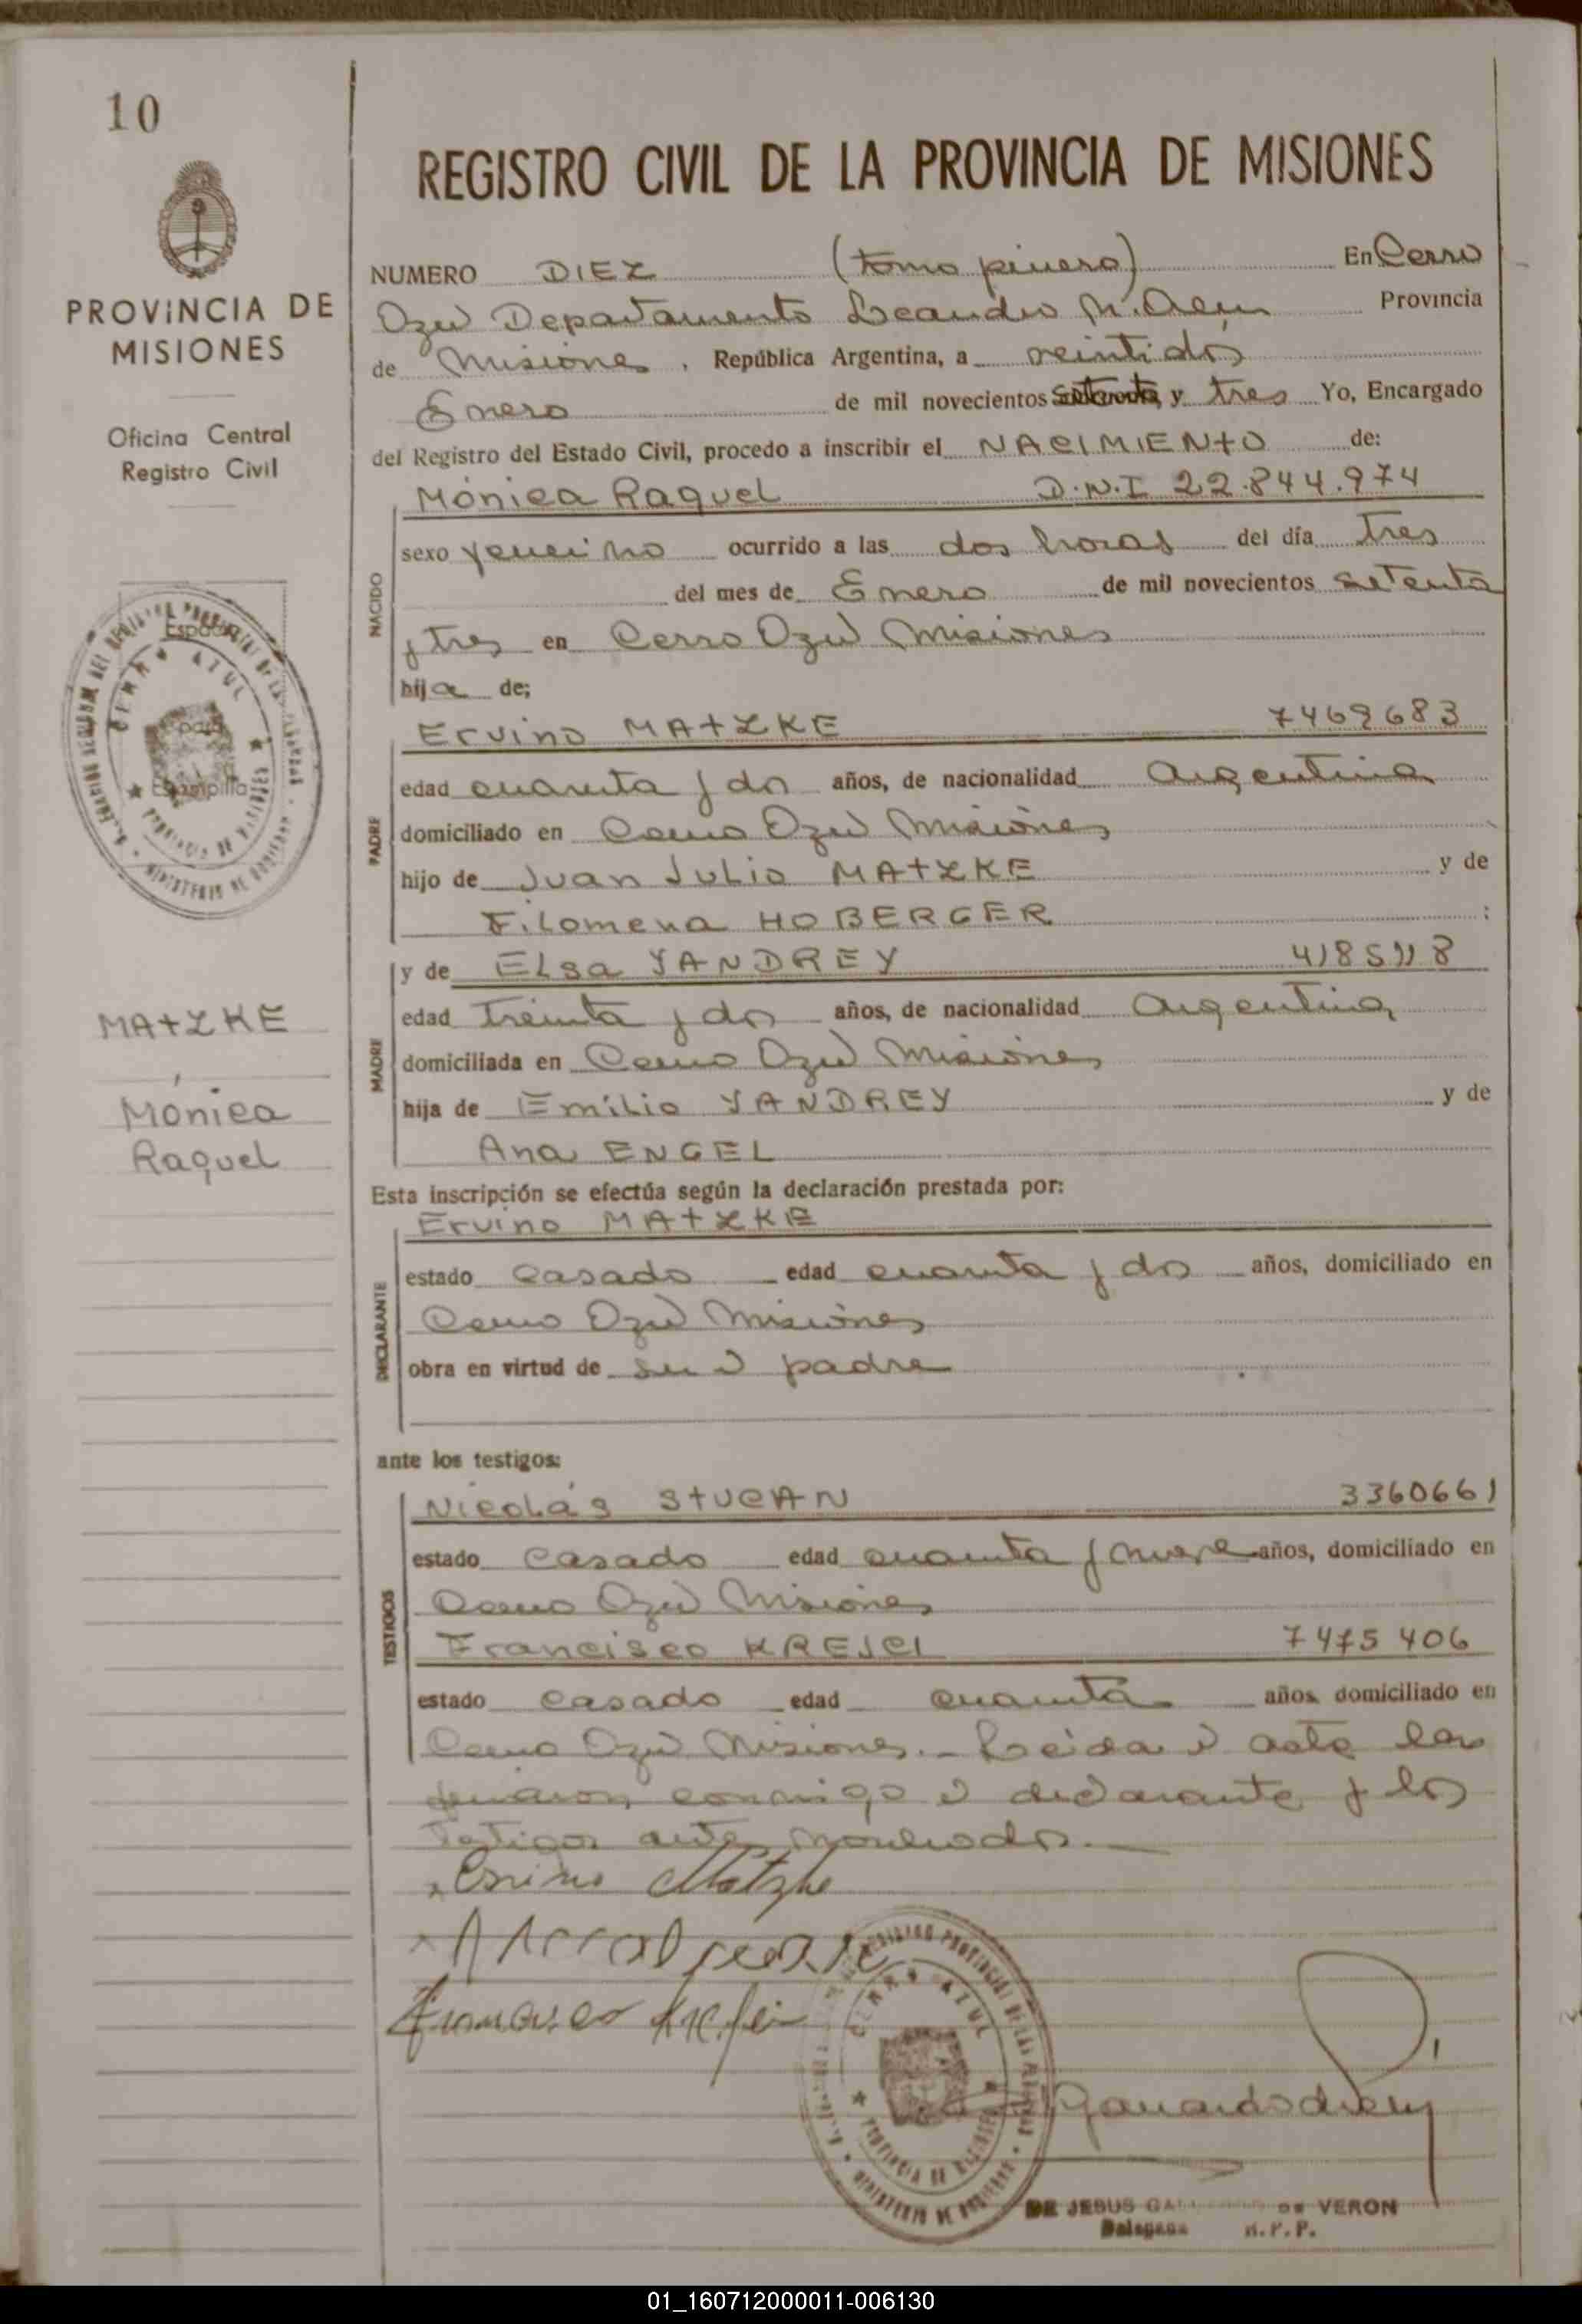 10
PROVINCIA DE
MISIONES
Oficina Central
Registro Civil
MATZKE
Mónica
Raquel
REGISTRO CIVIL DE LA PROVINCIA DE MISIONES
NUMERO DIEZ (tomo primero) En Cerro
Azul Departamento Leandro N. Alem Provincia
de Misiones, República Argentina, a veintidós
Enero de mil novecientos setenta y tres Yo, Encargado
del Registro del Estado Civil, procedo a inscribir el NACIMIENTO de:
Mónica Raquel D.N.I 22.844.974
NACIDO
sexo femenino ocurrido a las dos horas del día tres
del mes de Enero de mil novecientos setenta
y tres en Cerro Azul Misiones
hija de;
PADRE
Ervino MATZKE 7469683
edad cuarenta y dos años, de nacionalidad Argentina
domiciliado en Cerro Azul Misiones
hijo de Juan Julio MATZKE y de
Filomena HOBERGER :
MADRE
y de Elsa YANDREY 4185118
edad treinta y dos años, de nacionalidad Argentina
domiciliada en Cerro Azul Misiones
hija de Emilio YANDREY y de
Ana ENGEL
Esta inscripción se efectúa según la declaración prestada por:
DECLARANTE
Ervino MATZKE
estado casado edad cuarenta y dos años, domiciliado en
Cerro Azul Misiones
obra en virtud de ser el padre
ante los testigos:
TESTIGOS
Nicolás STUCAN 3360661
estado casado edad cuarenta y nueve años, domiciliado en
Cerro Azul Misiones
Francisco KREJCI 7475406
estado casado edad cuarenta años domiciliado en
Cerro Azul Misiones.- Leída el acta la
firmaron conmigo el declarante y los
testigos antes nombrados.-
Ervino Matzke
Francisco Krejci
CERRO AZUL
PROVINCIA DE MISIONES
DE JESUS DE VERON
Delegada R.P.P.
01_160712000011-006130